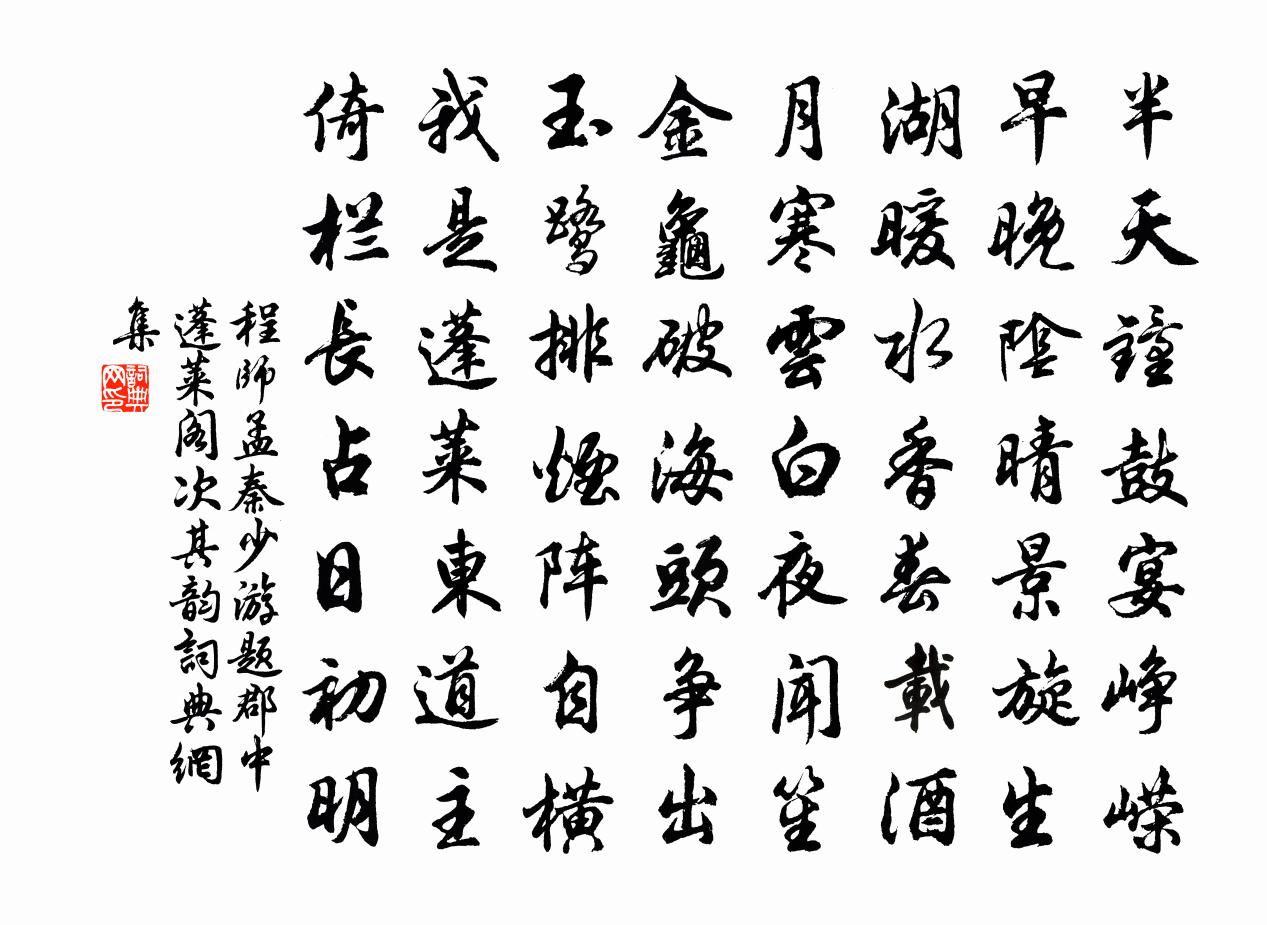 半天鐘鼓宴峥嵘
早晚陰晴景旋生
湖暖水香春載酒
月寒雲白夜闻笙
金龜破海頭争出
玉鹭排煙阵自横
我是蓬莱東道主
倚栏長占日初明
程師孟秦少游題郡中
蓬莱阁次其韵詞典網
集
詞典网印